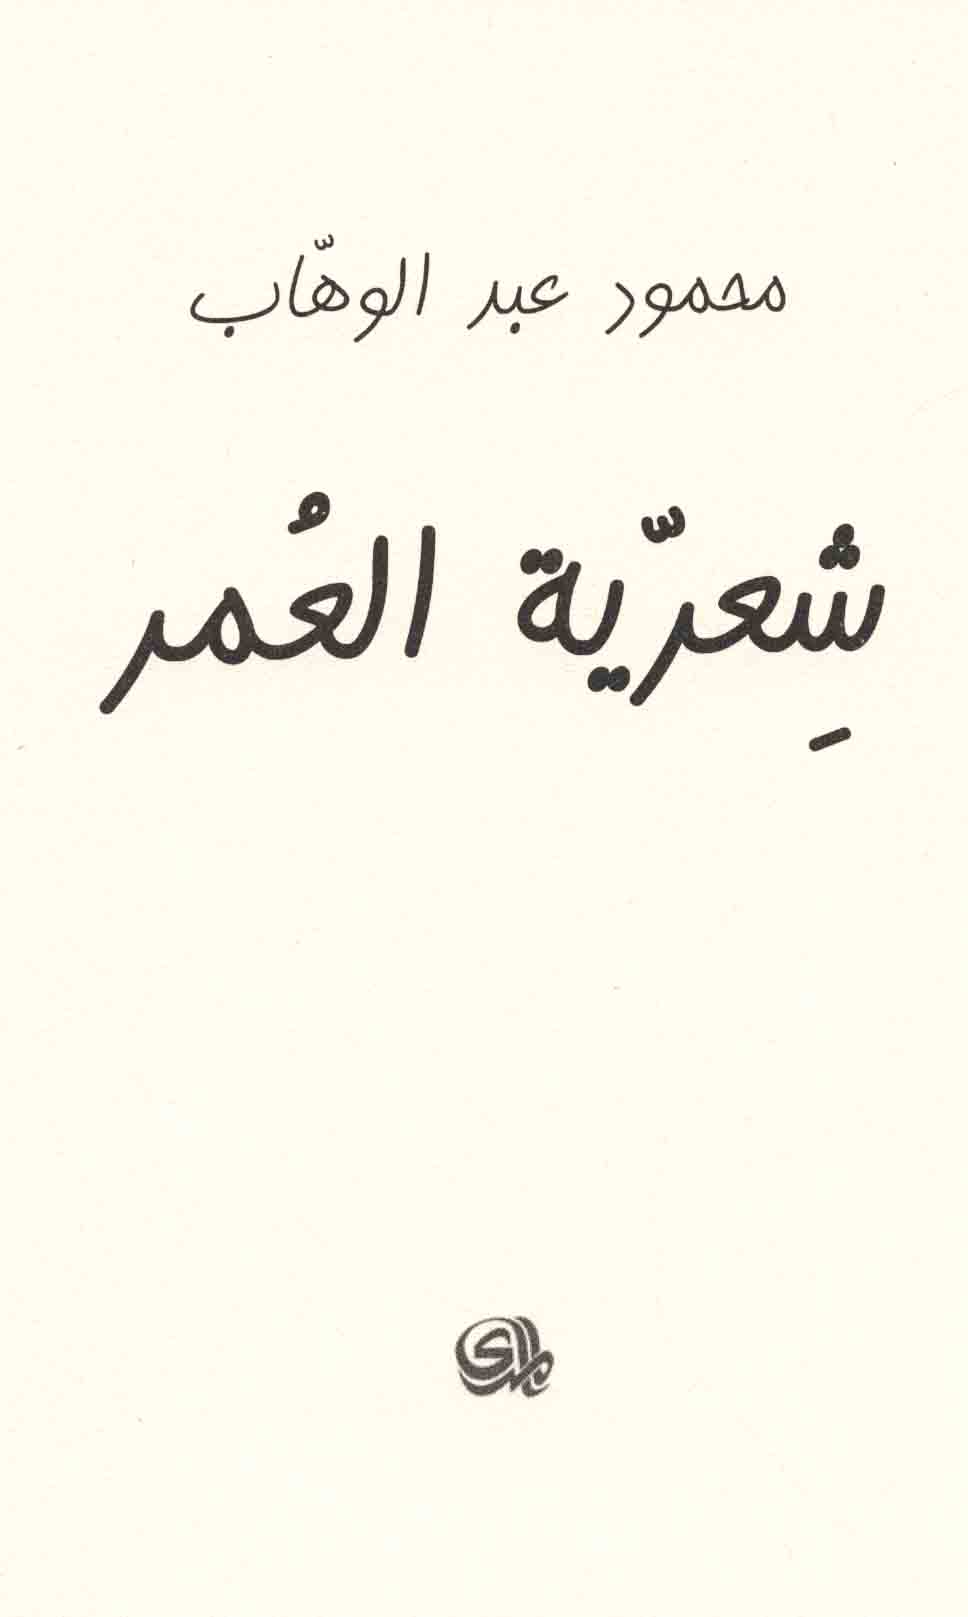 محمود عبد الوهّاب
شِعريّة العُمر
المدى